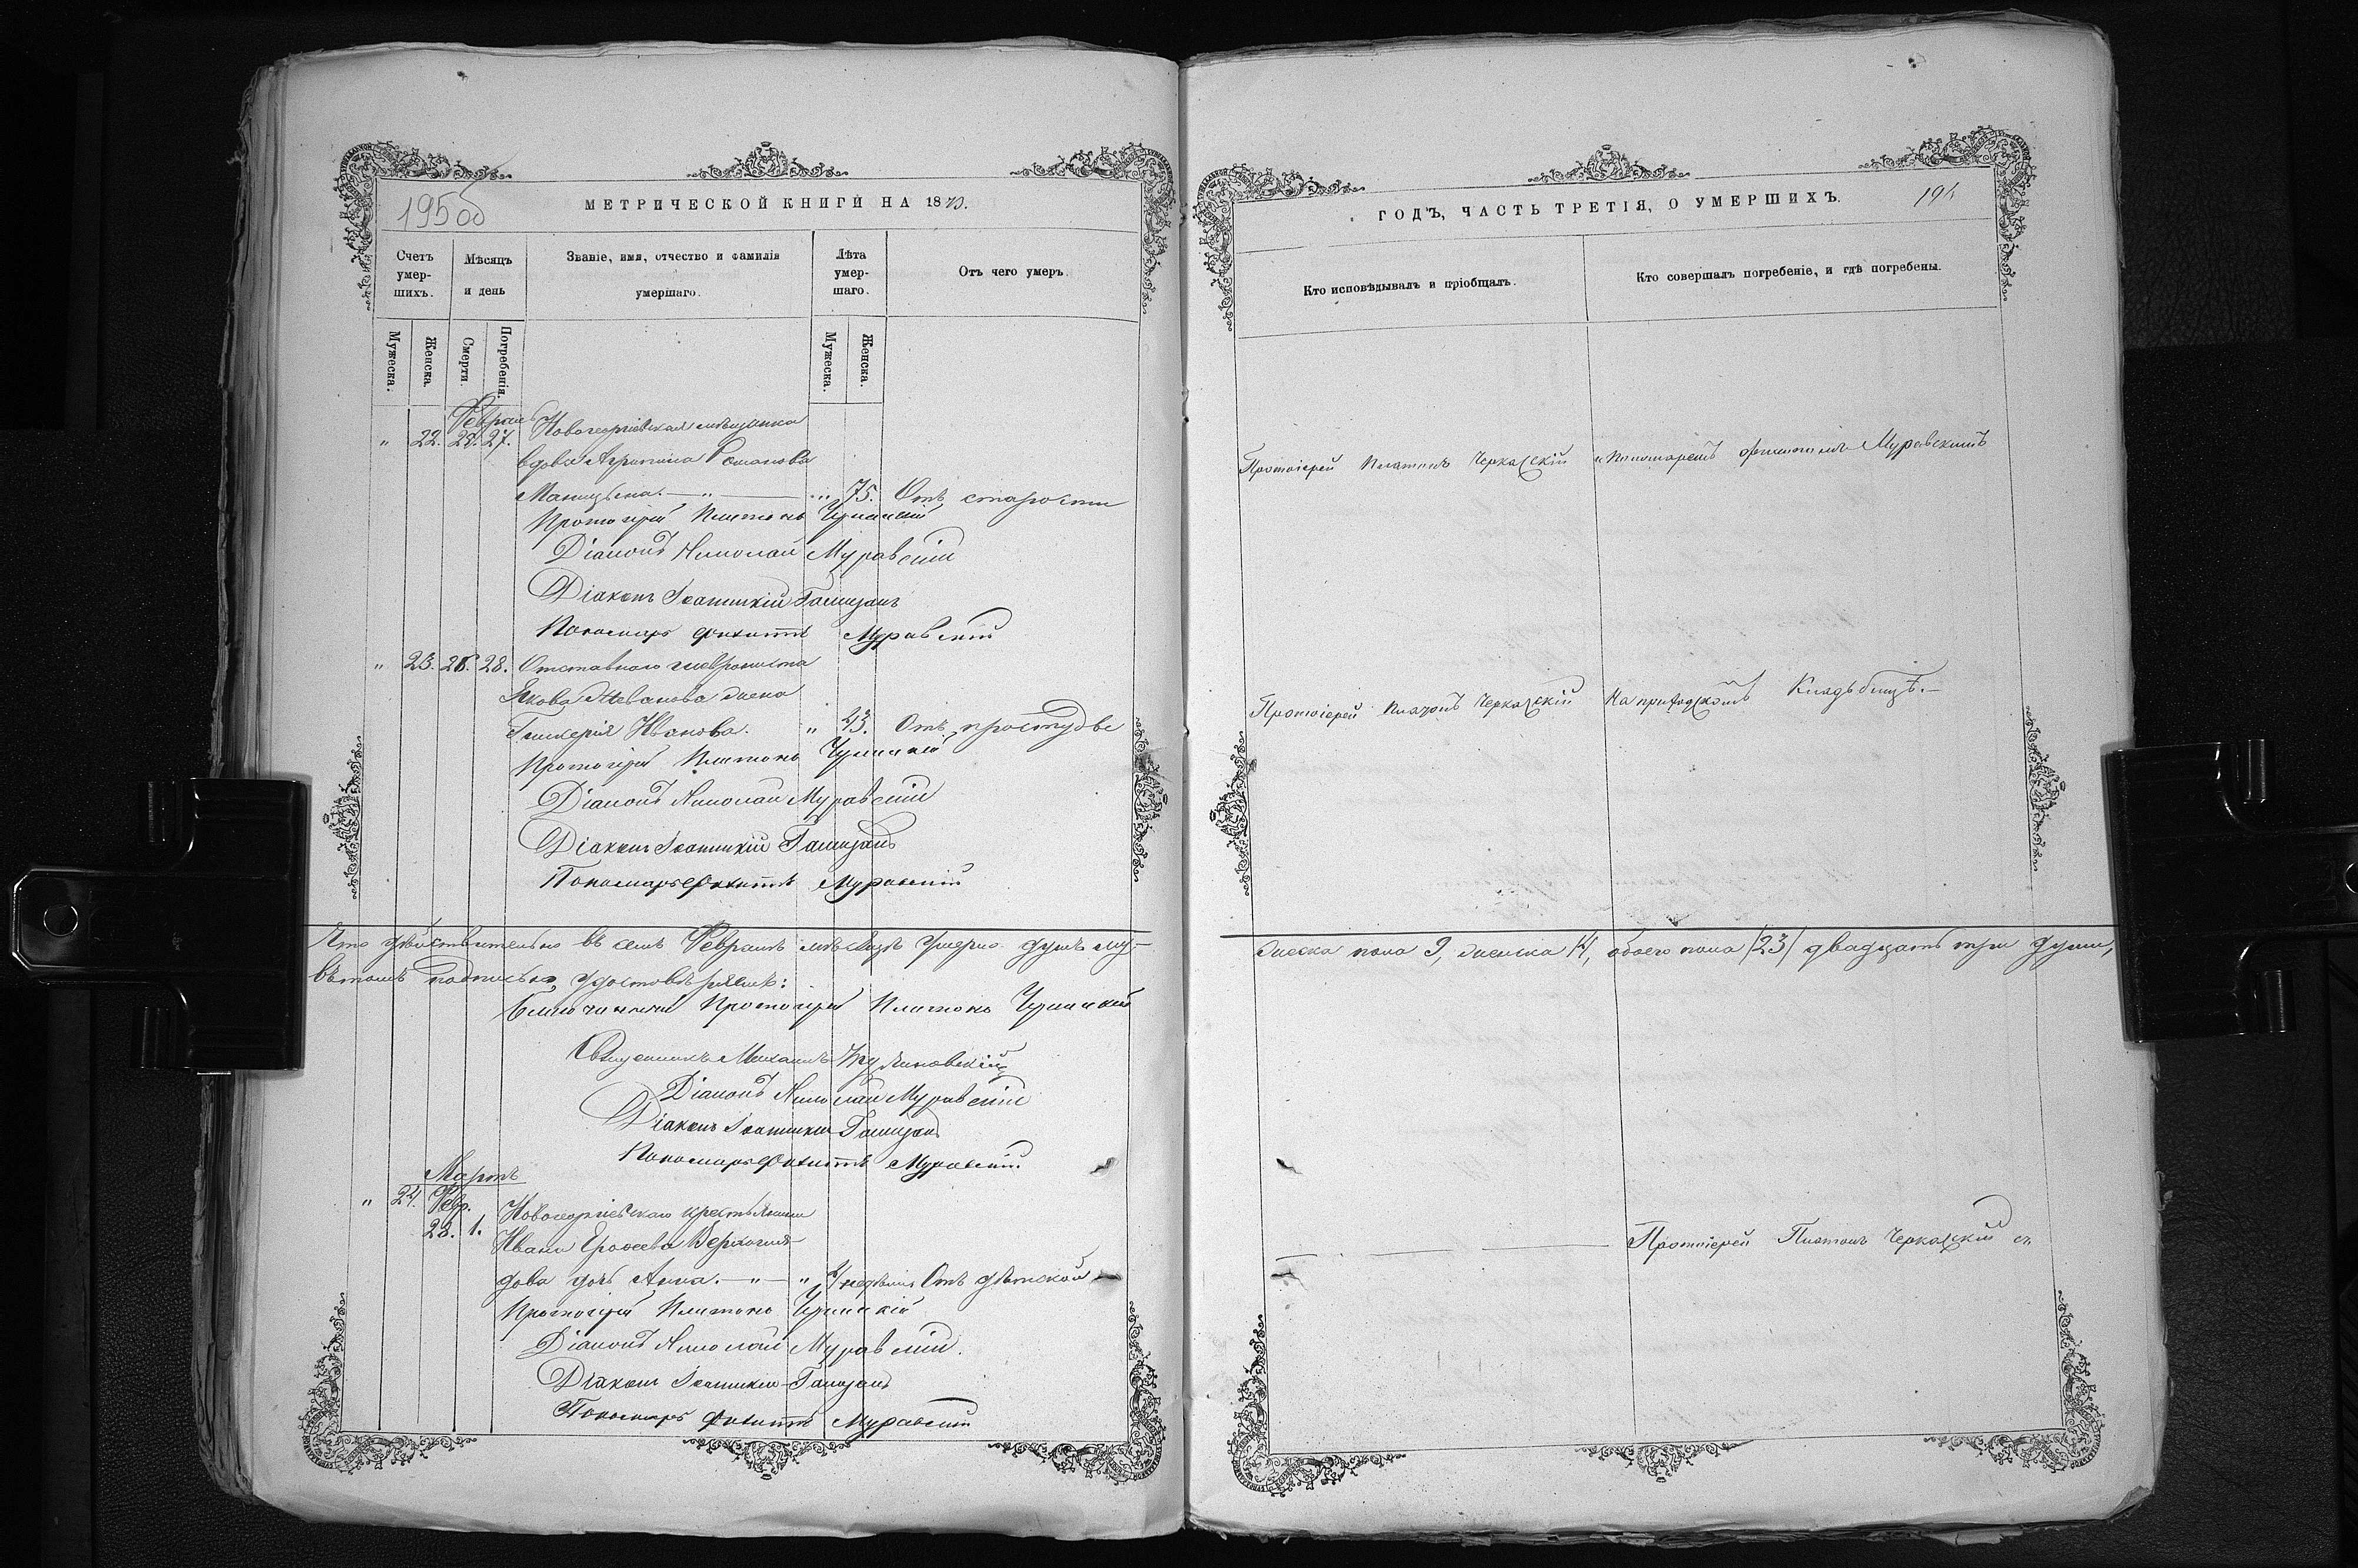 195 об
МЕТРИЧЕСКОЙ КНИГИ НА 1873.
Счетъ умер- шихъ.
Мѣсяцъ и день
Званіе, имя, отчество и фамилія умершаго.
Лѣта умер- шаго.
Отъ чего умеръ.
Мужеска.
Женска.
Смерти.
Погребенія.
Мужеска.
Женска.
Февраль
" 22. 25. 27. Новогеоргіевская мѣщанка
вдова Агрипина Романова
" 75. Отъ старости
Протоіерей Платонъ Черкаскій
Діаконъ Николай Муравскій
Діаконъ Іоанникій
Пономарь Филиппъ Муравскій
" 23. 28. Отставного
Якова Иванова жена
Гликерія Иванова. " 43. Отъ простуды
Протоіерей Платонъ Черкаскій
Діаконъ Николай Муравскій
Діаконъ Іоанникій
Пономарь Филиппъ Муравскій
Что дѣйствительно въ семъ Февралѣ мѣсяцѣ умерло душъ му-
въ томъ подписью удостовѣряемъ:
Благочинный Протоіерей Платонъ Черкаскій
Священникъ Михаилъ
Діаконъ Николай Муравскій
Діаконъ Іоанникій
Пономарь Филиппъ Муравскій
Мартъ
" 24. Февр.
28. 1. Новогеоргіевскаго крестьянина
Ивана Ерофеева
дова дочь Анна. " " недѣли Отъ дѣтской
Протоіерей Платонъ Черкаскій
Діаконъ Николай Муравскій.
Діаконъ Іоанникій
Пономарь Филиппъ Муравскій
ГОДЪ, ЧАСТЬ ТРЕТІЯ, О УМЕРШИХЪ.
Кто исповѣдывалъ и пріобщалъ.
Кто совершалъ погребеніе, и гдѣ погребены.
Протоіерей Платонъ Черкаскій
и Пономаремъ Филиппомъ Муравскимъ
Протоіерей Платонъ Черкаскій
На приходскомъ Кладбищѣ.
жеска пола 9, женска 14, обоего пола (23) двадцать три души,
Протоіерей Платонъ Черкаскій съ